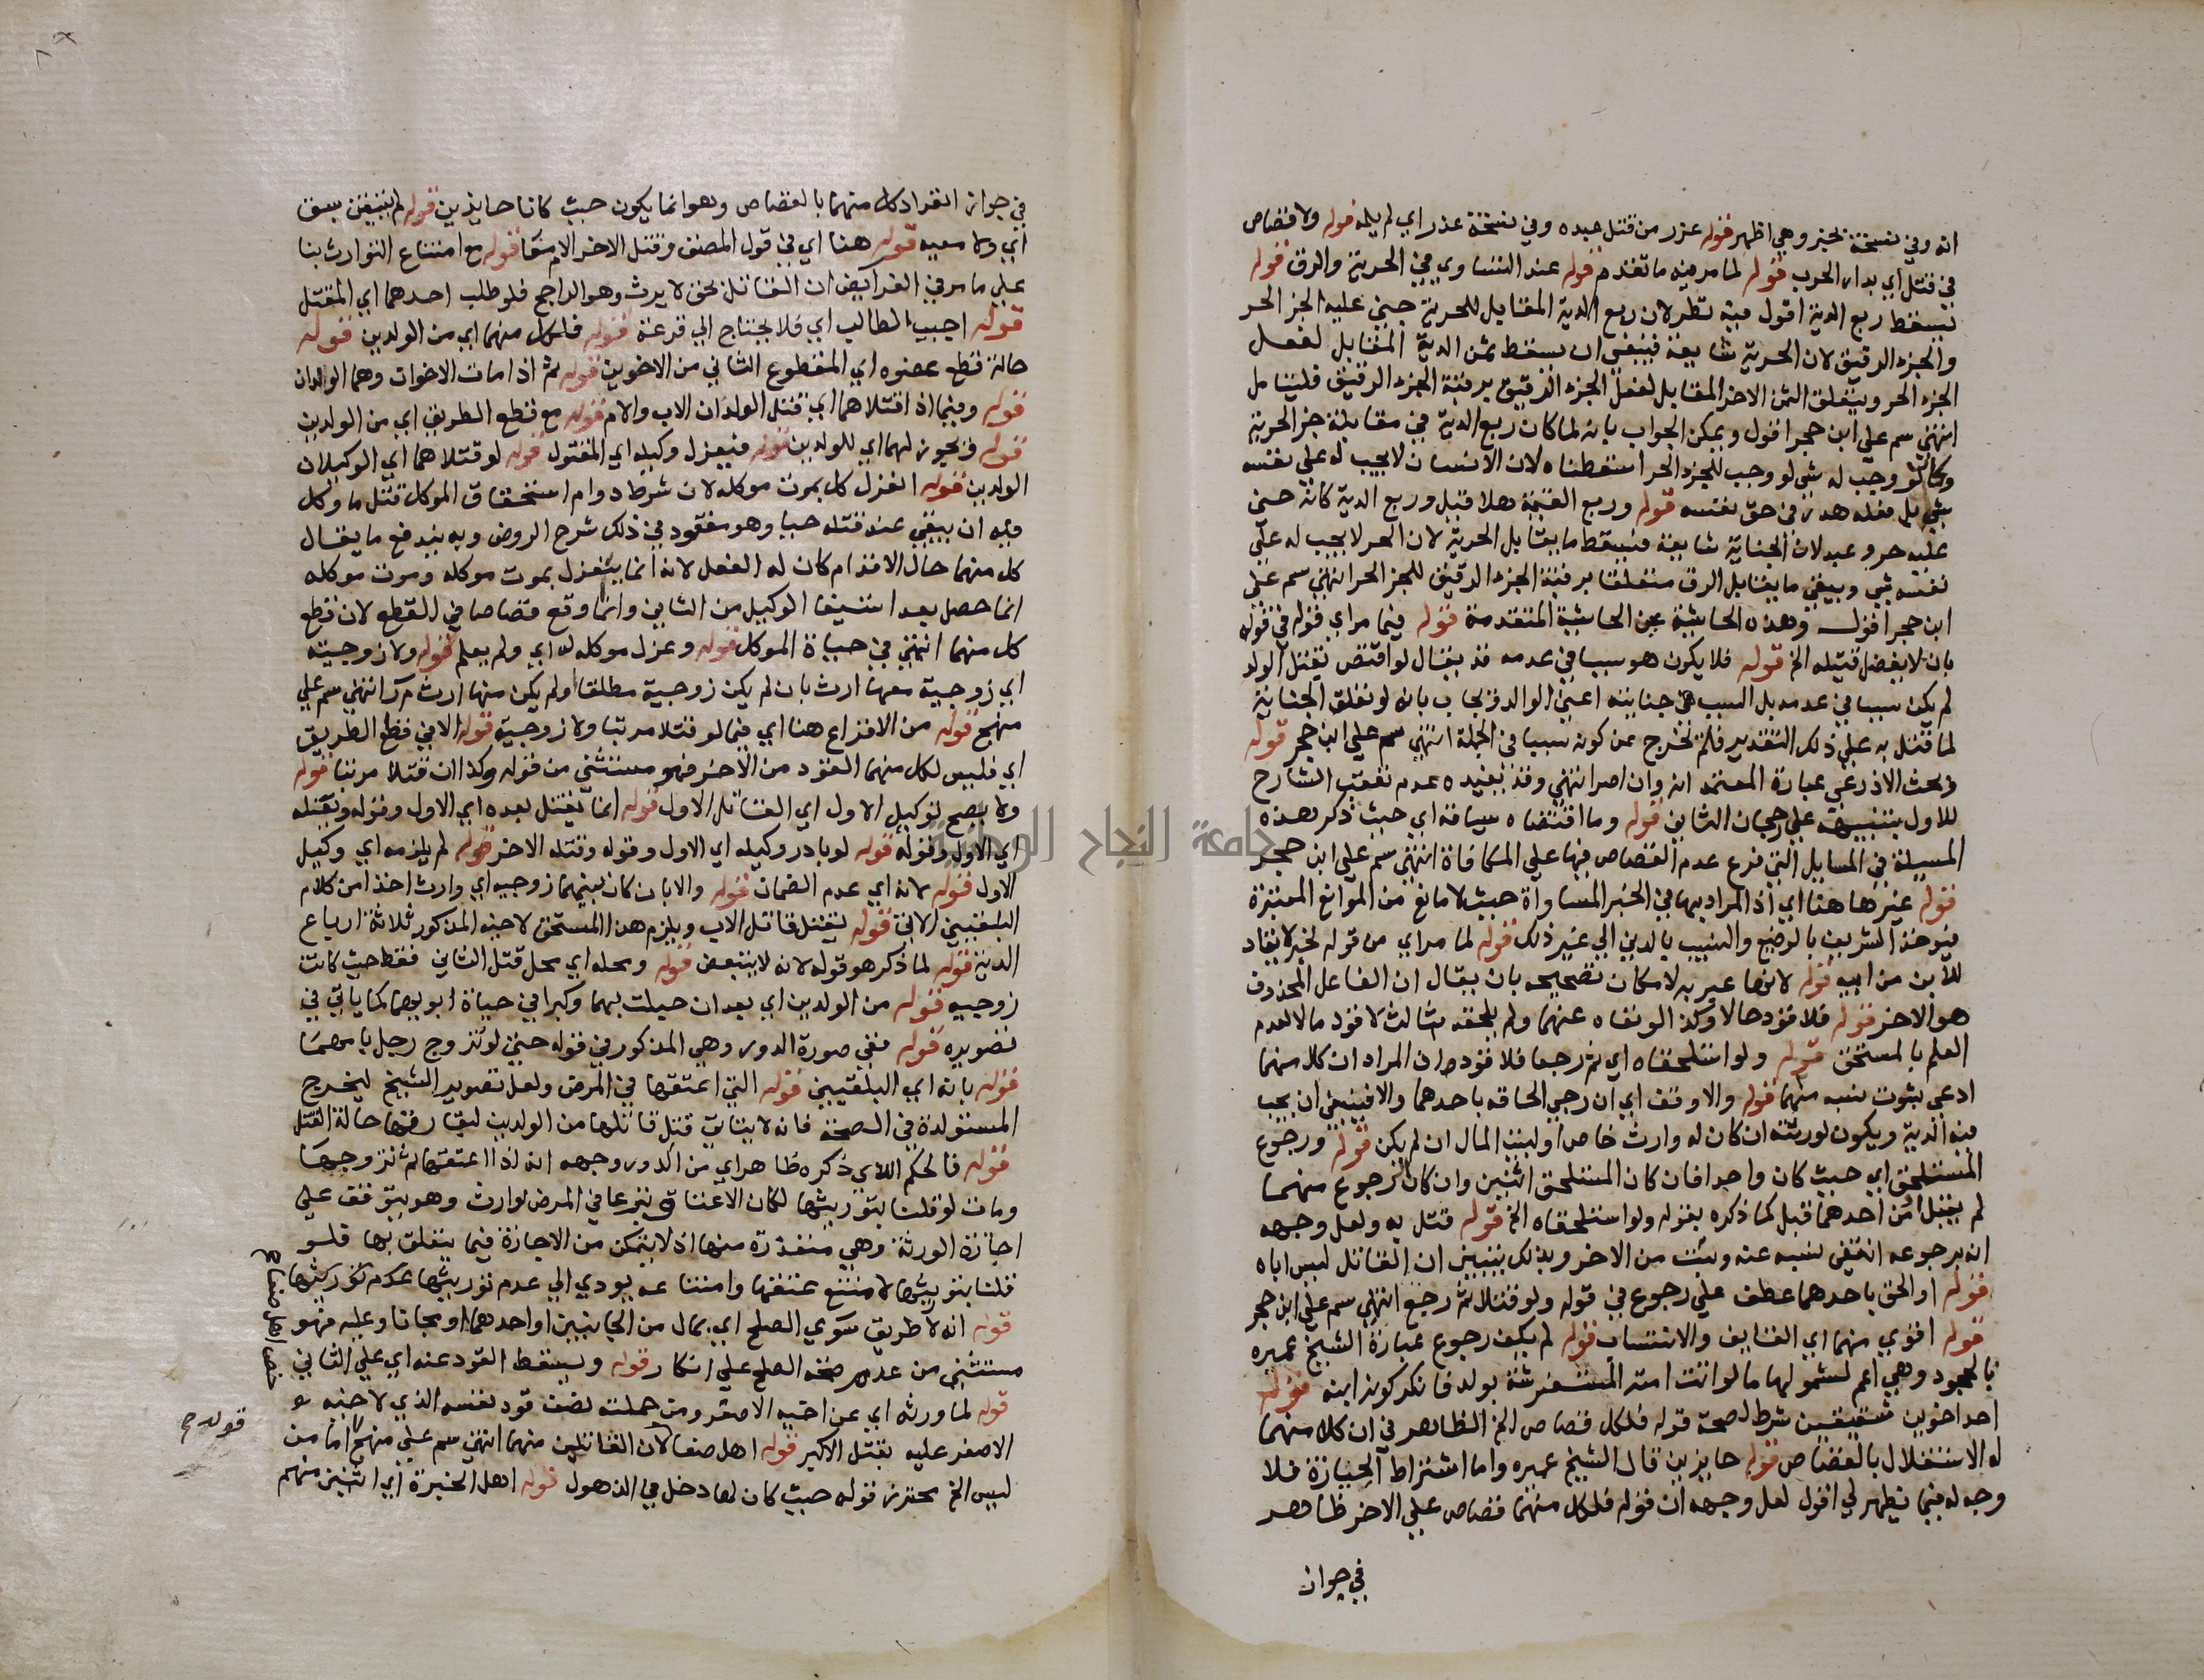 انه وفي نسخة بخبر وهي اظهر قوله عزر من قتل عبده وفي نسخة عذر اي لم يله قوله ولا قصاص
في قتل اي بدار الحرب قوله لما مر فيه ما تقدم قوله عند التساوي في الحرية والرق قوله
فيسقط ربع الدية اقول فيه نظر لان ربع الدية المقابل للحرية جني عليه الجز الحر
والجزء الرقيق لان الحرية شايعة فينبغي ان يسقط ثمن الدية المقابل لفعل
الجزء الحر ويتعلق الثمن الاخر المقابل لفعل الجزء الرقيق برقبة الجزء الرقيق فليتامل
انتهى سم على ابن حجر اقول ويمكن الجواب بانه لما كان ربع الدية في مقابلة جز الحرية
وكانه لو وجب له شي لو وجب للجزء الحر اسقطناه لان الانسان لا يجب له على نفسه
شي بل فعله هدر في حق نفسه قوله وربع القيمة هلا قيل وربع الدية كانه جني
عليه حر وعبد لان الجناية شايعة فيسقط ما يقابل الحرية لان الحر لا يجب له على
نفسه شي ويبقي ما يقابل الرق متعلقا برقبة الجزء الرقيق للجز الحر انتهى سم على
ابن حجر اقول وهذه الحاشية عين الحاشية المتقدمة قوله فيما مر اي قوله في قوله
بان لا يفضل قتيله الخ قوله فلا يكون هو سببا في عدمه قد يقال لو اقتص بقتل الولد
لم يكن سببا في عدمه بل السبب هو جنايته اعني الوالد وتجاب بانه لو تعلق الجناية
لما قتل به على ذلك التقدير فلم تخرج عن كونه سببا في الجملة انتهى سم على ابن حجر قوله
وبحث الاذرعي عبارة المعتمد انه وان اصر انتهى وقد يفيده عدم تعقب الشارح
للاول بتنبيهه على رجحان الثاني قوله وما اقتضاه سياقه اي حيث ذكر هذه
المسيلة في المسايل التي فرع عدم القصاص فيها على المكافاة انتهى سم على ابن حجر
قوله غيرها هنا اي اذ المراد بها في الخبر المساواة حيث لا مانع من الموانع المعتبرة
فيوخذ الشريف بالوضيع والنسيب بالدني الي غير ذلك قوله لما مر اي من قوله لخبر لا يقاد
للابن من ابيه قوله لانها عبر به لامكان تصحيحه بان يقال ان الفاعل المحذوف
هو الاخر قوله فلا قود حالا وكذا لو نفاه عنهما ولم يلحقه ثالث لا قود مالا لعدم
العلم بالمستحق قوله ولو استلحقاه اي ثم رجعا فلا قود وان المراد ان كلا منهما
ادعى بثبوت نسبه منهما قوله والا وقف اي ان رجي الحاقه باحدهما والا فينبغي ان يجب
فيه الدية ويكون لورثته ان كان له وارث خاص او لبيت المال ان لم يكن قوله ورجوع
المستلحق اي حيث كان واحدا فان كان المستلحق اثنين وان كان الرجوع منهما
لم يقبل او من احدهما قبل كما ذكره بقوله ولو استلحقاه الخ قوله قتل به ولعل وجهه
انه برجوعه انتفى نسبه عنه وثبت من الاخر وبذلك يتبين ان القاتل ليس اباه
قوله او الحق باحدهما عطف على رجوع في قوله ولو قتلا ثم رجع انتهى سم على ابن حجر
قوله اقوي منهما اي القايف والانتساب قوله لم يكف رجوع عبارة الشيخ عميره
بالجحود وهي اعم لشمولها ما لو اتت امته المستفرشة بولد فانكر كونه ابنه قوله
احد اخوين شقيقين شرط لصحة قوله فلكل قصاص الخ الظاهر في ان كلا منهما
له الاستقلال بالقصاص قوله حايزين قال الشيخ عميره واما اشتراط الحيازة فلا
وجه له فيما يظهر لي اقول لعل وجهه ان قوله فلكل منهما قصاص على الاخر ظاهر
في جواز
في جواز انفراد كل منهما بالقصاص وهو انما يكون حيث كانا حايزين قوله لم يتبين سبق
اي ولا معيه قوله هنا اي في قول المصنف وقتل الاخر الام معا قوله مع امتناع التوارث بنا
على ما مر في الفرايض ان القاتل بحق لا يرث وهو الراجح فلو طلب احدهما اي المقتل
قوله اجيب الطالب اي فلا يحتاج الي قرعة قوله فلكل منهما اي من الولدين قوله
حالة قطع عضوه اي المقطوع الثاني من الاخوين قوله ثم اذا مات الاخوان وهما الولدان
قوله وفيما اذا قتلاهما اي قتل الولدان الاب والام قوله مع قطع الطريق اي من الولدين
قوله فيجوز لهما اي للولدين قوله فيعزل وكيله اي المقتول قوله لو قتلاهما اي الوكيلان
الولدين قوله انعزل كل بموت موكله لان شرط دوام استحقاق الموكل قتل ما وكل
فيه ان يبقي عند قتله حيا وهو مفقود في ذلك شرح الروض وبه يندفع ما يقال
كل منهما حال الاقدام كان له الفعل لانه انما ينعزل بموت موكله وموت موكله
انما حصل بعد استيفا الوكيل من الثاني وانما وقع قصاصا في القطع لان قطع
كل منهما انتهى في حياة الموكل قوله وعزل موكله له اي ولم يعلم قوله ولا زوجية
اي زوجية معها ارث بان لم يكن زوجية مطلقا او لم يكن منها ارث م ر انتهى سم على
منهج قوله من الاقراع هنا اي فيما لو قتلا مرتبا ولا زوجية قوله الا في قطع الطريق
اي فليس لكل منهما القود من الاخر فهو مستثنى من قوله وكذا ان قتلا مرتبا قوله
ولا يصح توكيل الاول اي القاتل الاول قوله انما يقتل بعده اي الاول وقوله وبقتله
اي الاول وقوله قوله لو بادر وكيله اي الاول وقوله وقتله الاخر قوله لم يلزمه اي وكيل
الاول قوله لانه اي عدم الضمان قوله والا بان كان بينهما زوجيه اي وارث اخذا من كلام
البلقيني الاتي قوله بقتل قاتل الاب ويلزم هذا المستحق لاخيه المذكور ثلاثة ارباع
الدية قوله لما ذكر هو قوله لانه لا يتبعض قوله ومحله اي محل قتل الثاني فقط حيث كانت
زوجيه قوله من الولدين اي بعد ان حبلت بهما وكبرا في حياة ابويهما كما ياتي في
تصويره قوله ففي صورة الدور وهي المذكور في قوله حتى لو تزوج رجل بامهما
قوله بانه اي البلقيني قوله التي اعتقها في المرض ولعل تصوير الشيخ ليخرج
المستولدة في الصحة فانه لا يتاتى قتل قاتلها من الولدين لبقا رقها حالة القتل
قوله فالحكم الذي ذكره ظاهر اي من الدور وجهه انه اذا اعتقها ثم تزوجها
ومات لو قلنا بتوريثها لكان الاعتاق تبرعا في المرض لوارث وهو يتوقف على
اجازة الورثة وهي متعذرة منها اذ لا يتمكن من الاجازة فيما يتعلق بها فلو
قلنا بتوريثها لامتنع عتقها وامتناعه يودي الي عدم توريثها عدم توريثها
قوله انه لا طريق سوي الصلح اي بمال من الجانبين او احدهما او مجانا وعليه فهو
مستثنى من عدم صحة الصلح على انكار قوله ويسقط القود عنه اي على الثاني
قوله لما ورثه اي عن اخيه الاصغر ومن جملته نصف قود نفسه الذي لاخيه
الاصغر عليه بقتل الاكبر قوله اهل صنعا لان القاتلين منهما انتهى سم على منهج اما من
ليس الخ محترز قوله حيث كان لها دخل في الذهول قوله اهل الخبرة اي اثنين منهم
قوله م
جامعة النجاح الوطنية